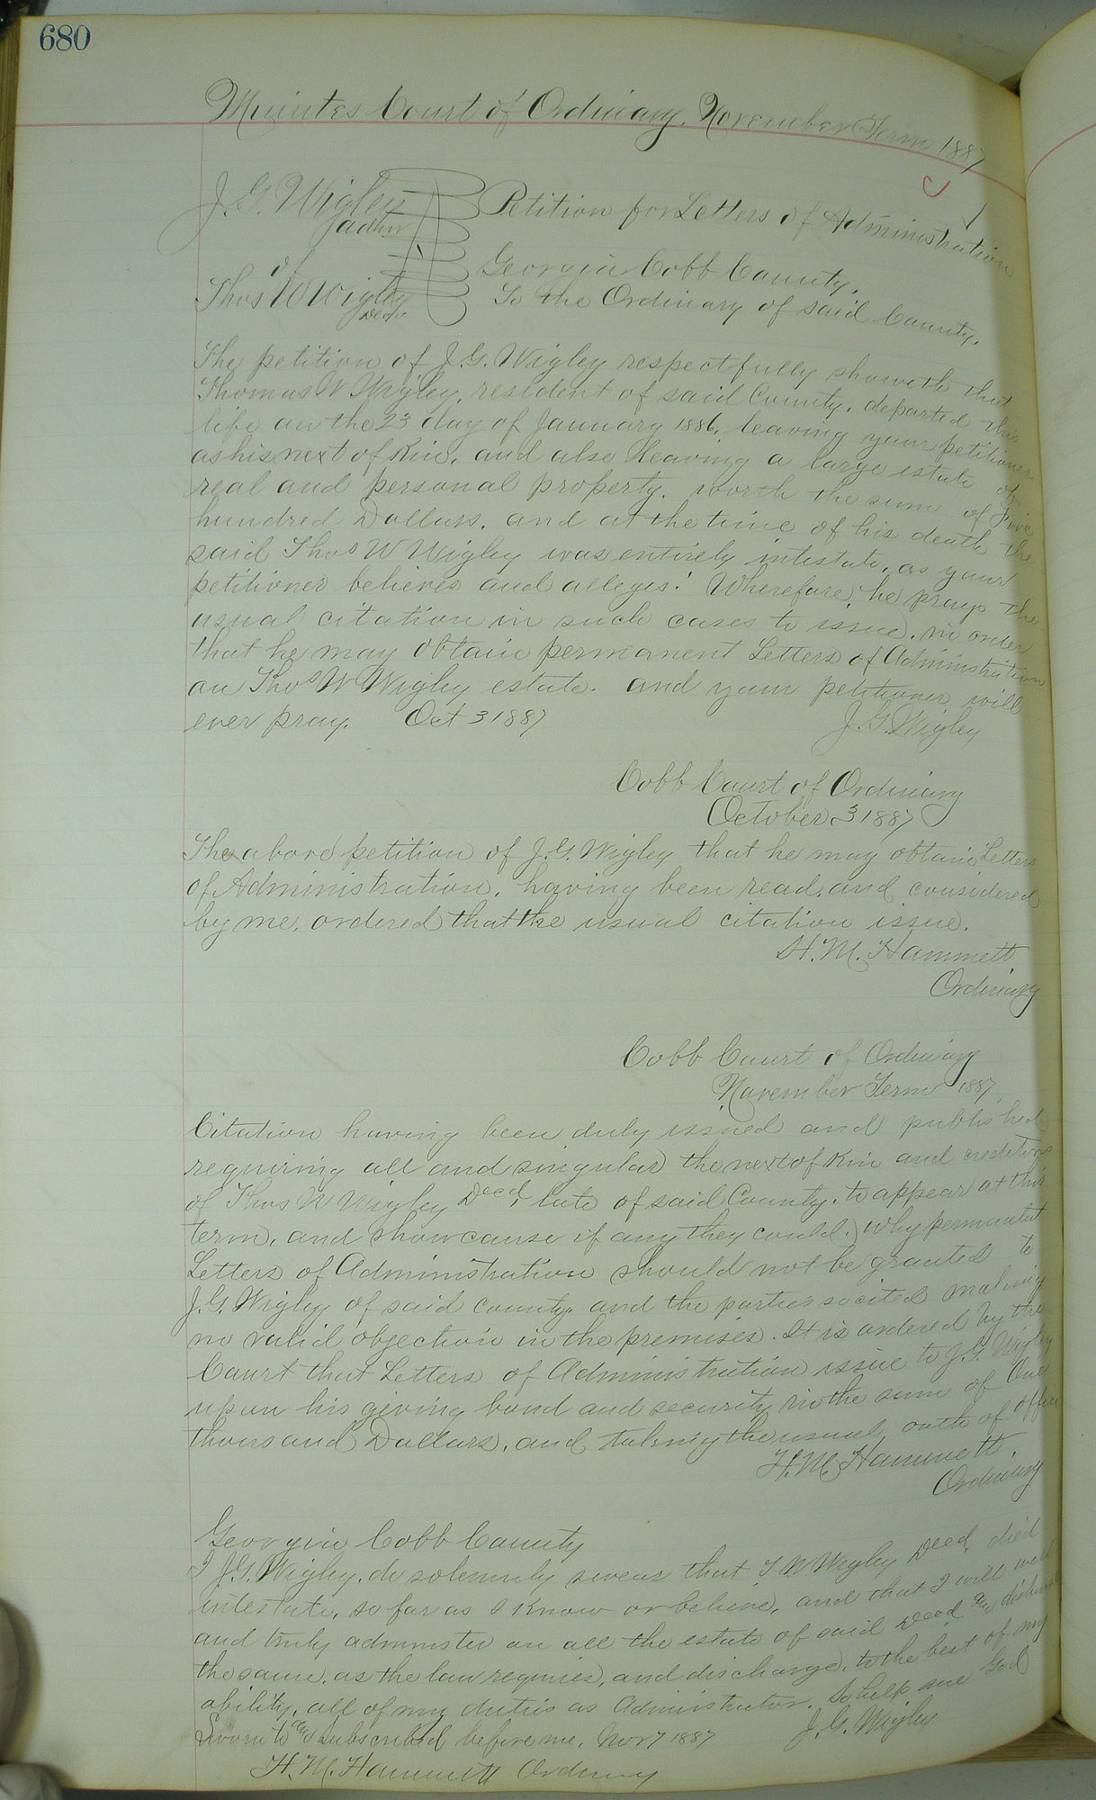 680
Minutes Court of Ordinary, November Term 1887
J. G. Wigley
adm
of
Thos W Wigley
Decd.
Petition for Letters of Administration
Georgia Cobb County,
To the Ordinary of said County.
The petition of J. G. Wigley respectfully showeth that
Thomas W Wigley, resident of said County, departed this
life on the 23 day of January 1886, leaving your petitioner
as his next of Kin, and also leaving a large estate of
real and personal property, worth the sum of Five
hundred Dollars, and at the time of his death the
said Thos W Wigley was entirely intestate, as your
petitioner believes and alleges: Wherefore, he prays the
usual citation in such cases to issue, in order
that he may obtain permanent Letters of Administration
on Thos W Wigley estate. and your petitioner will
ever pray. Oct 3 1887
J. G. Wigley
Cobb Court of Ordinary
October 3 1887
The above petition of J. G. Wigley that he may obtain Letters
of Administration, having been read, and considered
by me, ordered that the usual citation issue.
H. M. Hammett
Ordinary
Cobb Court of Ordinary
November Term 1887
Citation having been duly issued and published
requiring all and singular the next of Kin and creditors
of Thos W Wigley Decd, late of said County, to appear at this
term, and show cause if any they could, why permanent
Letters of Administration should not be granted to
J. G. Wigley of said county, and the parties so cited making
no valid objection in the premises. It is ordered by the
Court that Letters of Administration issue to J. G. Wigley
upon his giving bond and security in the sum of One
thousand Dollars, and taking the usual oath of office
H. M. Hammett.
Ordinary
Georgia Cobb County
I J. G. Wigley, do solemnly swear that T W Wigley Decd, died
intestate, so far as I Know or believe, and that I will well
and truly administer on all the estate of said Decd & disburse
the same, as the law requires, and discharge, to the best of my
ability, all of my duties as Administrator. So help me God
Sworn to & subscribed before me, Nov 7 1887
J. G. Wigley
H. M. Hammett Ordinary